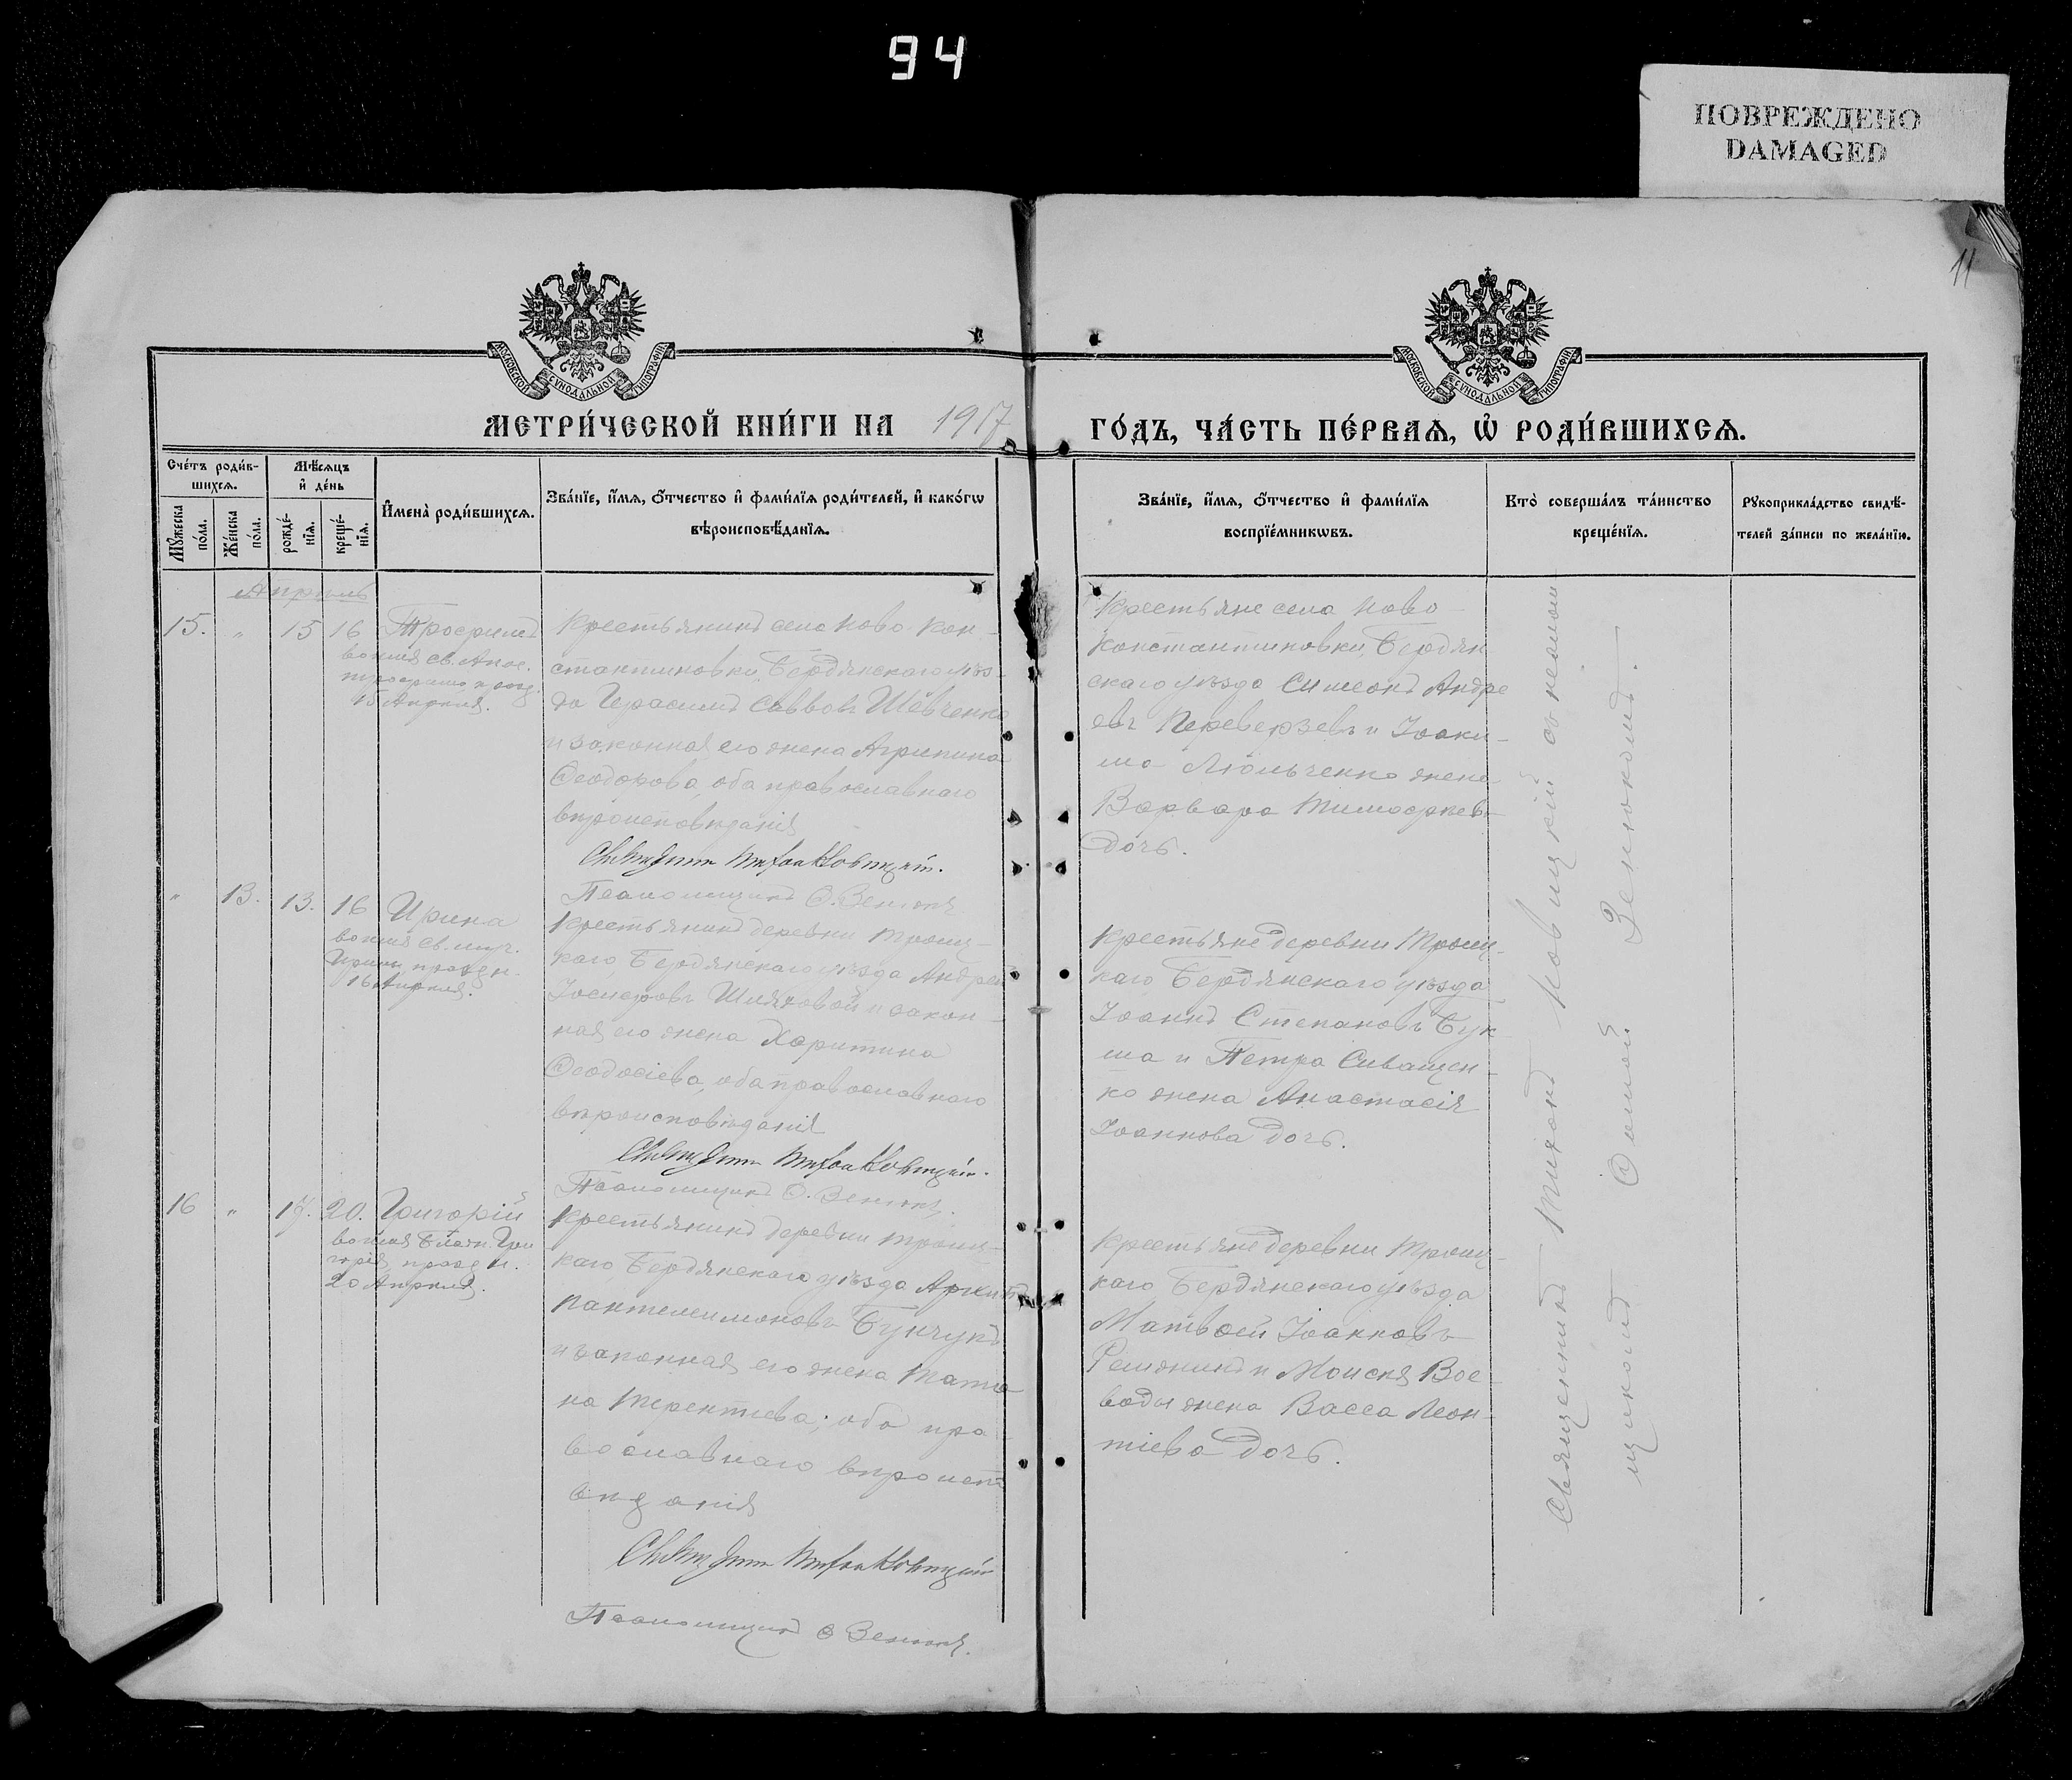 94
ПОВРЕЖДЕНО
DAMAGED
11
МОСКОВСКОЙ СѴНОДАЛЬНОЙ ТИПОГРАФІИ
МОСКОВСКОЙ СѴНОДАЛЬНОЙ ТИПОГРАФІИ
МЕТРИ́ЧЕСКОЙ КНИ́ГИ НА 1917
ГО́ДЪ, ЧА́СТЬ ПЕ́РВАѦ, Ѡ҆ РОДИ́ВШИХСѦ.
Сче́тъ роди́в-
шихсѧ.
Мѣ́сѧцъ
и҆ де́нь
Мꙋ́жеска
по́ла.
Же́нска
по́ла.
рожде́-
нїѧ.
креще́-
нїѧ.
И҆мена̀ роди́вшихсѧ.
Зва́нїе, и҆́мѧ, ѻ҆́тчество и҆ фами́лїѧ роди́телей, и҆ како́гѡ
вѣроисповѣ́данїѧ.
Зва́нїе, и҆́мѧ, ѻ҆́тчество и҆ фами́лїѧ
воспрїе́мникѡвъ.
Кто̀ соверша́лъ та́инство
креще́нїѧ.
Рꙋкоприкла́дство свидѣ́-
телей за́писи по жела́нїю.
Апрѣль
15. " 15 16 Трофимъ
во имя св. Апос.
Трофима празд.
15 Апрѣля.
Крестьянинъ села Ново-Кон-
стантиновки, Бердянскаго уѣз-
да Герасимъ Саввовъ Шевченко
и законная его жена Агрипина
Ѳеодорова, оба православнаго
вѣроисповѣданія
Священникъ Тихонъ Новицкій.
Псаломщикъ Ѳ. Зенюкъ
Крестьяне села Ново-
константиновки, Бердян-
скаго уѣзда Симеонъ Андре
евъ Переверзевъ и Іоаки-
ма Люльченко жена
Варвара Тимоѳеева
дочь.
" 13. 13. 16 Ирина
во имя св. муч.
Ирины праздн.
16 Апрѣля.
Крестьянинъ деревни Троиц-
каго, Бердянскаго уѣзда Андрей
Іосифовъ Шляховой и закон-
ная его жена Харитина
Ѳеодосіева, оба православнаго
вѣроисповѣданія
Священникъ Тихонъ Новицкій.
Псаломщикъ Ѳ. Зенюкъ.
Крестьяне деревни Троиц-
каго Бердянскаго уѣзда
Іоаннъ Степановъ Бук-
ша и Петра Сиващен-
ко жена Анастасія
Іоаннова дочь.
16 " 17. 20. Григорій
во имя Блажн. Гри
горія, праздн.
20 Апрѣля.
Крестьянинъ деревни Троиц-
каго, Бердянскаго уѣзда
Пантелеимоновъ Бунчукъ
и законная его жена Татіа
на Терентіева; оба пра-
вославнаго вѣроиспо
вѣданія
Священникъ Тихонъ Новицкій
Псаломщикъ Ѳ Зенюкъ.
Крестьяне деревни Троиц-
каго Бердянскаго уѣзда
Матвѣй Іоанновъ
и Моисея Вое-
воды жена Васса Леон-
тіева дочь.
Священникъ Тихонъ Новицкій съ псалом
щикомъ Зенюкомъ.